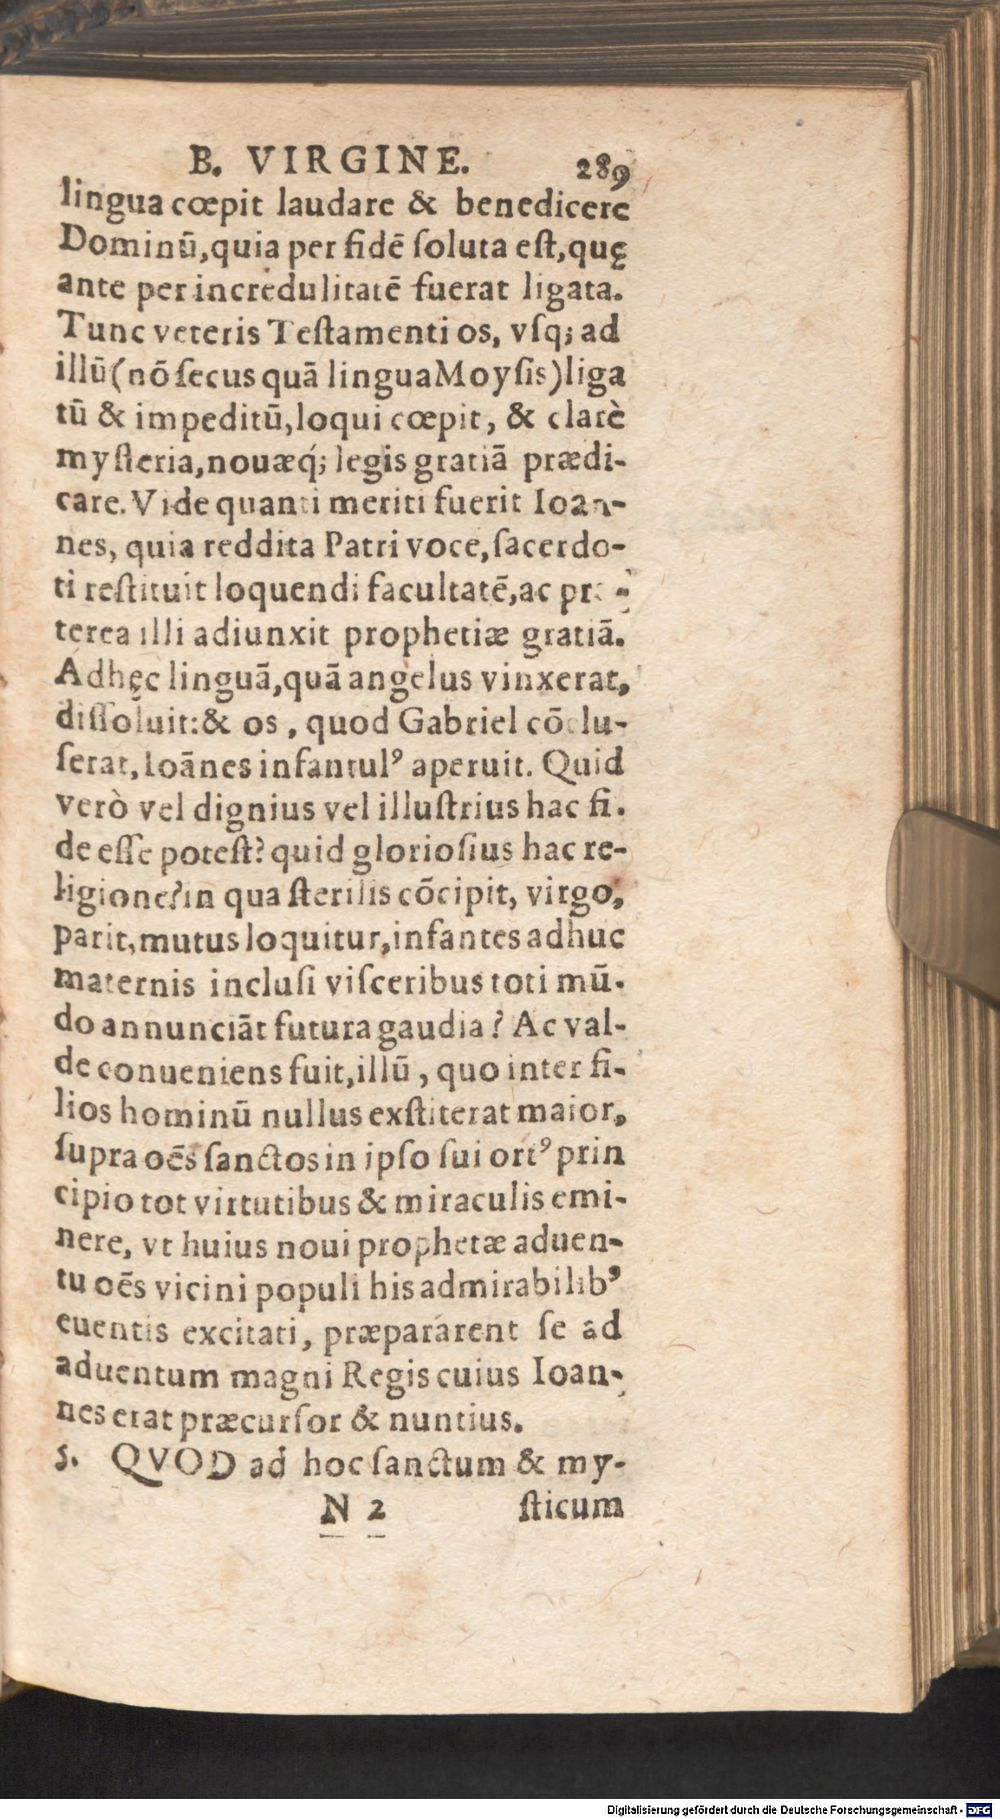 B. VIRGINE. 289
lingua cœpit laudare & benedicere
Dominū, quia per fidē ſoluta eſt, quę
ante per incredulitatē fuerat ligata.
Tunc veteris Teſtamenti os, vſq; ad
illū (nō ſecus quā lingua Moyſis) liga
tū & impeditū, loqui cœpit, & clarè
myſteria, nouæq́; legis gratiā prædi-
care. Vide quanti meriti fuerit Ioan-
nes, quia reddita Patri voce, ſacerdo-
ti reſtituit loquendi facultatē, ac præ-
terea illi adiunxit prophetiæ gratiā.
Adhęc linguā, quā angelus vinxerat,
diſſoluit: & os, quod Gabriel cōclu-
ſerat, Ioānes infantulꝰ aperuit. Quid
verò vel dignius vel illuſtrius hac fi-
de eſſe poteſt? quid glorioſius hac re-
ligione? in qua ſterilis cōcipit, virgo,
parit, mutus loquitur, infantes adhuc
maternis incluſi viſceribus toti mū-
do annunciāt futura gaudia? Ac val-
de conueniens fuit, illū, quo inter fi-
lios hominū nullus exſtiterat maior,
ſupra oēs ſanctos in ipſo ſui ortꝰ prin
cipio tot virtutibus & miraculis emi-
nere, vt huius noui prophetæ aduen-
tu oēs vicini populi his admirabilibꝰ
euentis excitati, præpararent ſe ad
aduentum magni Regis cuius Ioan-
nes erat præcurſor & nuntius.
5. QVOD ad hoc ſanctum & my-
N 2 ſticum
Digitalisierung gefördert durch die Deutsche Forschungsgemeinschaft - DFG